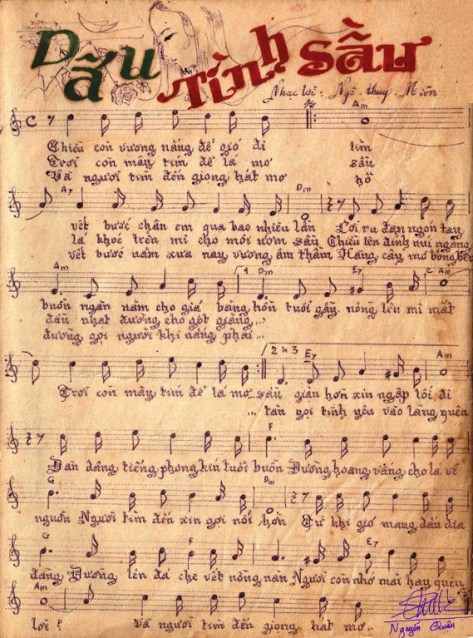 Dấu Tình Sầu
Nhạc lời: Ngô-thụy-Miên
Am
Chiều còn vương nắng để gió đi tìm
Trời còn mây tím để lá mơ sầu
Và người tìm đến giọng hát mơ hồ
A7 Dm
vết bước chân em qua bao nhiêu lần Lời ru đan ngón tay
lá khóc trên mi cho môi ươm sầu Chiều lên đỉnh núi ngang
vết bước năm xưa nay vương âm thầm Hàng cây mơ bóng
Am 1 Dm E7 2 Am
buồn ngàn năm cho giá băng hồn tuổi gầy nồng lên mi mắt
dấu nhạt đường cho gót giầy...
đường gọi người khi nắng phai...
2 n 3 E7 Am
Trời còn mây tím để lá mơ sầu giận hờn xin ngập lối đi
... tan gọi tình yêu vào lãng quên
F
Đàn dâng tiếng phong kín tuổi buồn Đường hoang vắng cho lá về
G Dm
nguồn Người tìm đến xin gọi nỗi hờn Từ khi gió mang dấu địa
G F Am E7
đàng Dương lên đá che vết nồng nàn Người còn nhớ mãi hay quên
Am
lời ? Và người tìm đến giọng hát mơ..
Nguyễn